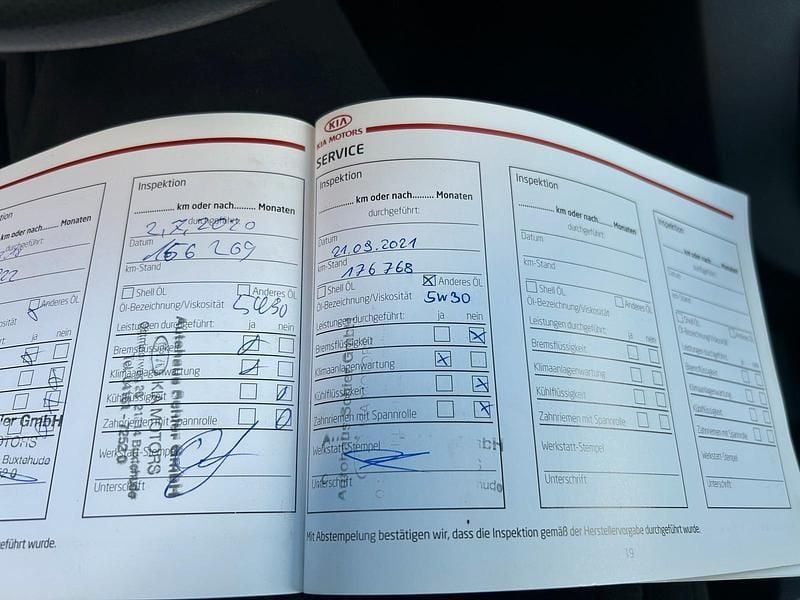 Monaten
durchgeführt:
Anderes ÖL
ja nein
GmbH
Buxtehude
eführt wurde.
Inspektion
km oder nach......... Monaten
durchgeführt:
2.7.2020
Datum
156 269
km-Stand
Shell ÖL Anderes ÖL
Öl-Bezeichnung/Viskosität 5W30
Leistungen durchgeführt: ja nein
Bremsflüssigkeit
Klimaanlagenwartung
Kühlflüssigkeit
Zahnriemen mit Spannrolle
Unterschrift
KIA MOTORS
KIA
KIA MOTORS
SERVICE
Inspektion
km oder nach......... Monaten
durchgeführt:
Datum
21.09.2021
km-Stand
176 768
Shell ÖL Anderes ÖL
Öl-Bezeichnung/Viskosität 5W30
Leistungen durchgeführt: ja nein
Bremsflüssigkeit
Klimaanlagenwartung
Kühlflüssigkeit
Zahnriemen mit Spannrolle
Werkstatt-Stempel
Unterschrift
Inspektion
km oder nach......... Monaten
durchgeführt:
Datum
km-Stand
Shell ÖL Anderes ÖL
Öl-Bezeichnung/Viskosität
Leistungen durchgeführt: ja nein
Bremsflüssigkeit
Klimaanlagenwartung
Kühlflüssigkeit
Zahnriemen mit Spannrolle
Werkstatt-Stempel
Unterschrift
Inspektion
km oder nach......... Monaten
durchgeführt:
Datum
km-Stand
Shell ÖL Anderes ÖL
Öl-Bezeichnung/Viskosität
Leistungen durchgeführt: ja nein
Bremsflüssigkeit
Klimaanlagenwartung
Kühlflüssigkeit
Zahnriemen mit Spannrolle
Werkstatt-Stempel
Unterschrift
Mit Abstempelung bestätigen wir, dass die Inspektion gemäß der Herstellervorgabe durchgeführt wurde.
19